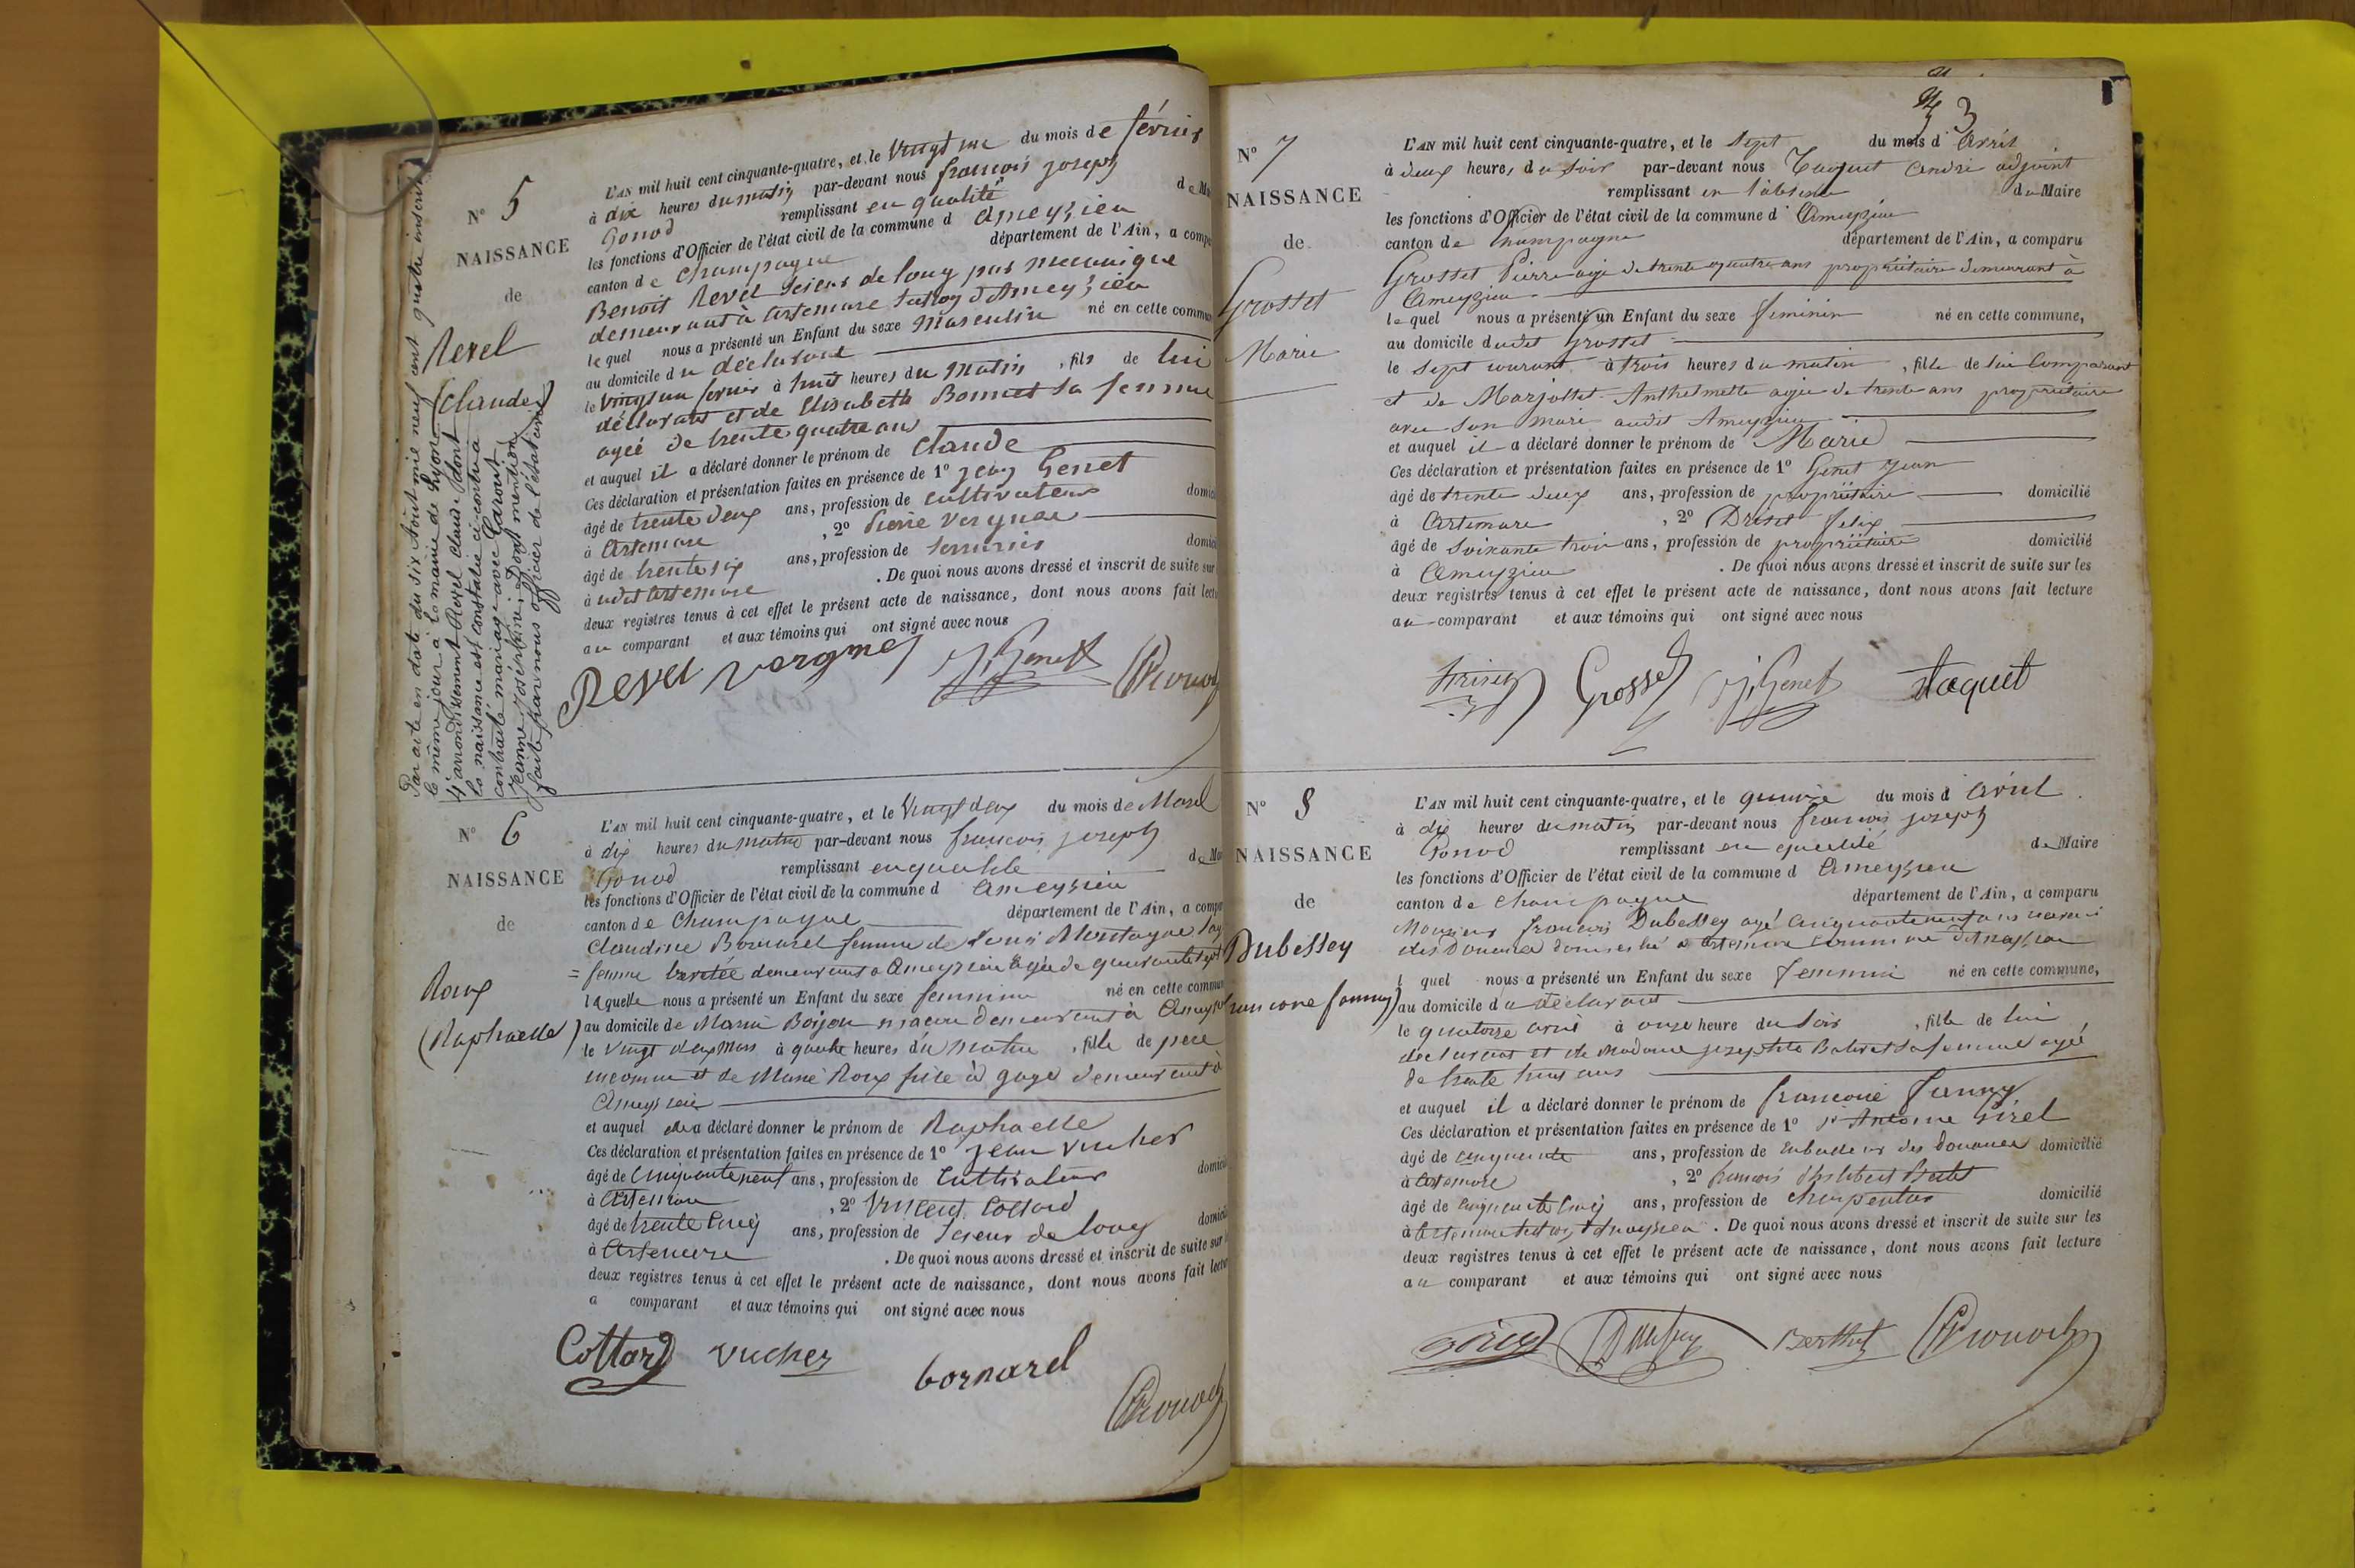 N° 5
NAISSANCE
de
Revel
(Claude)
Par acte en date du six Août mil neuf cent quatre inscrit
le même jour à la mairie de Lyon
4e arrondissement Revel Claude dont
la naissance est constatée ci-contre a
contracté mariage avec
Jeanne Joséphine. Dont mention
faite par nous officier de l'état civil
L'AN mil huit cent cinquante-quatre, et le Vingt un du mois de février
à dix heures du matin par-devant nous francois joseph
Gonod remplissant en qualité de
les fonctions d'Officier de l'état civil de la commune d Ameyzieu
canton de Champagne département de l'Ain, a compa
Benoit Revel Scieur de long par mecanique
demeurant à Artemare d'Ameyzieu
lequel nous a présenté un Enfant du sexe Masculin né en cette commun
au domicile du déclarant
le vingt un fevrier à huit heures du Matin , fils de lui
déclarant et de Elisabeth Bonnet sa femme
agée de trente quatre ans
et auquel il a déclaré donner le prénom de Claude
Ces déclaration et présentation faites en présence de 1° jean Genet
âgé de trente deux ans, profession de cultivateur domici
à Artemare , 2° Pierre Vergnes
âgé de trente six ans, profession de Serrurier domici
à udit artemare . De quoi nous avons dressé et inscrit de suite sur
deux registres tenus à cet effet le présent acte de naissance, dont nous avons fait lectu
au comparant et aux témoins qui ont signé avec nous
Revel Vergnes J. Genet Gonod
N° 6
NAISSANCE
de
Roux
(Raphaelle)
L'AN mil huit cent cinquante-quatre, et le Vingt deux du mois de Mars
à dix heures du matin par-devant nous francois joseph
Gonod remplissant en qualité de
les fonctions d'Officier de l'état civil de la commune d Ameyzieu
canton de Champagne département de l'Ain, a compa
Claudine Bornarel femme de Montagne Sag
= femme demeurant a Ameyzieu agée de quarante sept
laquelle nous a présenté un Enfant du sexe feminin né en cette commun
au domicile de Boijon maçon demeurant à Ameyzi
le Vingt deux Mars à quatre heures du Matin , fille de père
inconnu et de Marie Roux fille à gage demeurant à
Ameyzieu
et auquel elle a déclaré donner le prénom de Raphaelle
Ces déclaration et présentation faites en présence de 1° Jean Vucher
âgé de Cinquante neuf ans, profession de Cultivateur domici
à Artemare , 2° Vincent Cottard
âgé de trente Cinq ans, profession de Scieur de long domici
à Artemare . De quoi nous avons dressé et inscrit de suite sur
deux registres tenus à cet effet le présent acte de naissance, dont nous avons fait lectu
a comparant et aux témoins qui ont signé avec nous
Cottard vucher bornarel Gonod
3
N° 7
NAISSANCE
de
Grosset
Marie
L'AN mil huit cent cinquante-quatre, et le Sept du mois d'Avril
à deux heures du soir par-devant nous Taquet André adjoint
remplissant en l'absence du Maire
les fonctions d'Officier de l'état civil de la commune d'Ameyzieu
canton de Champagne département de l'Ain, a comparu
Grosset Pierre agé de trente quatre ans propriétaire demeurant à
Ameyzieu
lequel nous a présenté un Enfant du sexe féminin né en cette commune,
au domicile dudit Grosset
le Sept courant à trois heures du matin , fille de lui Comparant
et de Marjollet Anthelmette agée de trente ans propriétaire
avec son mari audit Ameyzieu
et auquel il a déclaré donner le prénom de Marie
Ces déclaration et présentation faites en présence de 1° Genet Jean
âgé de trente deux ans, profession de propriétaire domicilié
à Artemare , 2° Drivet félix
âgé de Soixante trois ans, profession de propriétaire domicilié
à Ameyzieu . De quoi nous avons dressé et inscrit de suite sur les
deux registres tenus à cet effet le présent acte de naissance, dont nous avons fait lecture
au comparant et aux témoins qui ont signé avec nous
Drivet Grosset J. Genet Taquet
N° 8
NAISSANCE
de
Dubessey
francoise fanny)
L'AN mil huit cent cinquante-quatre, et le quinze du mois d avril
à dix heures du matin par-devant nous francois joseph
Gonod remplissant en qualité de Maire
les fonctions d'Officier de l'état civil de la commune d Ameyzieu
canton de Champagne département de l'Ain, a comparu
Monsieur francois Dubessey agé Cinquante neuf ans
des Douanes domicilié a artemare commune d'Ameyzieu
l quel nous a présenté un Enfant du sexe feminin né en cette commune,
au domicile du déclarant
le quatorze avril à onze heure du Soir , fille de lui
déclarant et de Madame josephte sa femme agée
de trente trois ans
et auquel il a déclaré donner le prénom de francoise fanny
Ces déclaration et présentation faites en présence de 1° Antoine Girel
âgé de cinquante ans, profession de des douanes domicilié
à artemare , 2° francois
âgé de Cinquante Cinq ans, profession de charpentier domicilié
à artemare d'Ameyzieu . De quoi nous avons dressé et inscrit de suite sur les
deux registres tenus à cet effet le présent acte de naissance, dont nous avons fait lecture
au comparant et aux témoins qui ont signé avec nous
Berthet Gonod